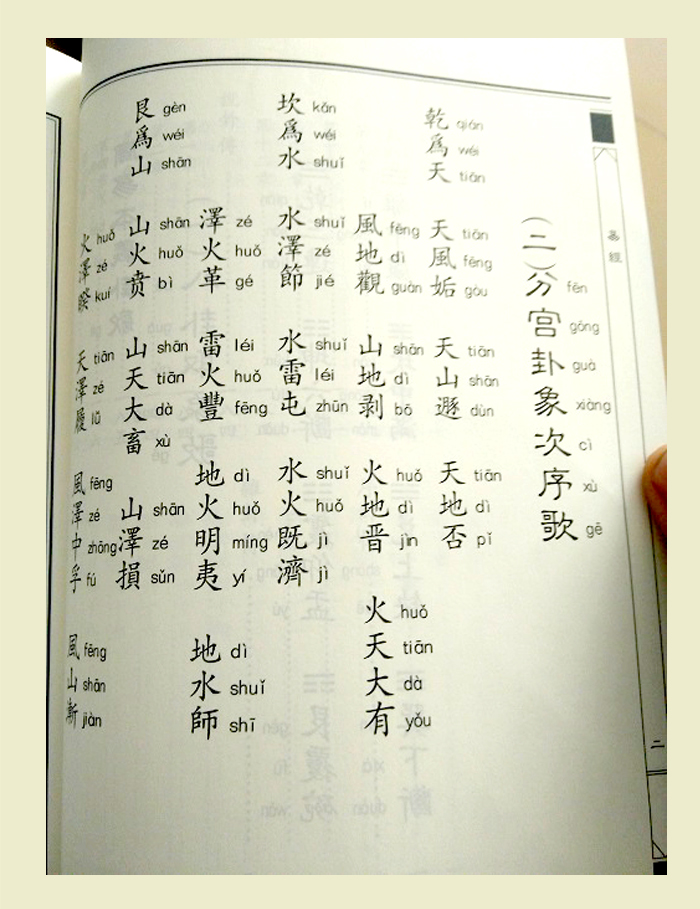 易經
二
(二)分宫卦象次序歌
fēn gōng guà xiàng cì xù gē
乾爲天 天風姤 天山遯 天地否
qián wéi tiān tiān fēng gòu tiān shān dùn tiān dì pǐ
風地觀 山地剥 火地晋 火天大有
fēng dì guàn shān dì bō huǒ dì jìn huǒ tiān dà yǒu
坎爲水 水澤節 水雷屯 水火既濟
kǎn wéi shuǐ shuǐ zé jié shuǐ léi zhūn shuǐ huǒ jì jì
澤火革 雷火豐 地火明夷 地水師
zé huǒ gé léi huǒ fēng dì huǒ míng yí dì shuǐ shī
艮爲山 山火賁 山天大畜 山澤損
gèn wéi shān shān huǒ bì shān tiān dà xù shān zé sǔn
火澤睽 天澤履 風澤中孚 風山漸
huǒ zé kuí tiān zé lǚ fēng zé zhōng fú fēng shān jiàn